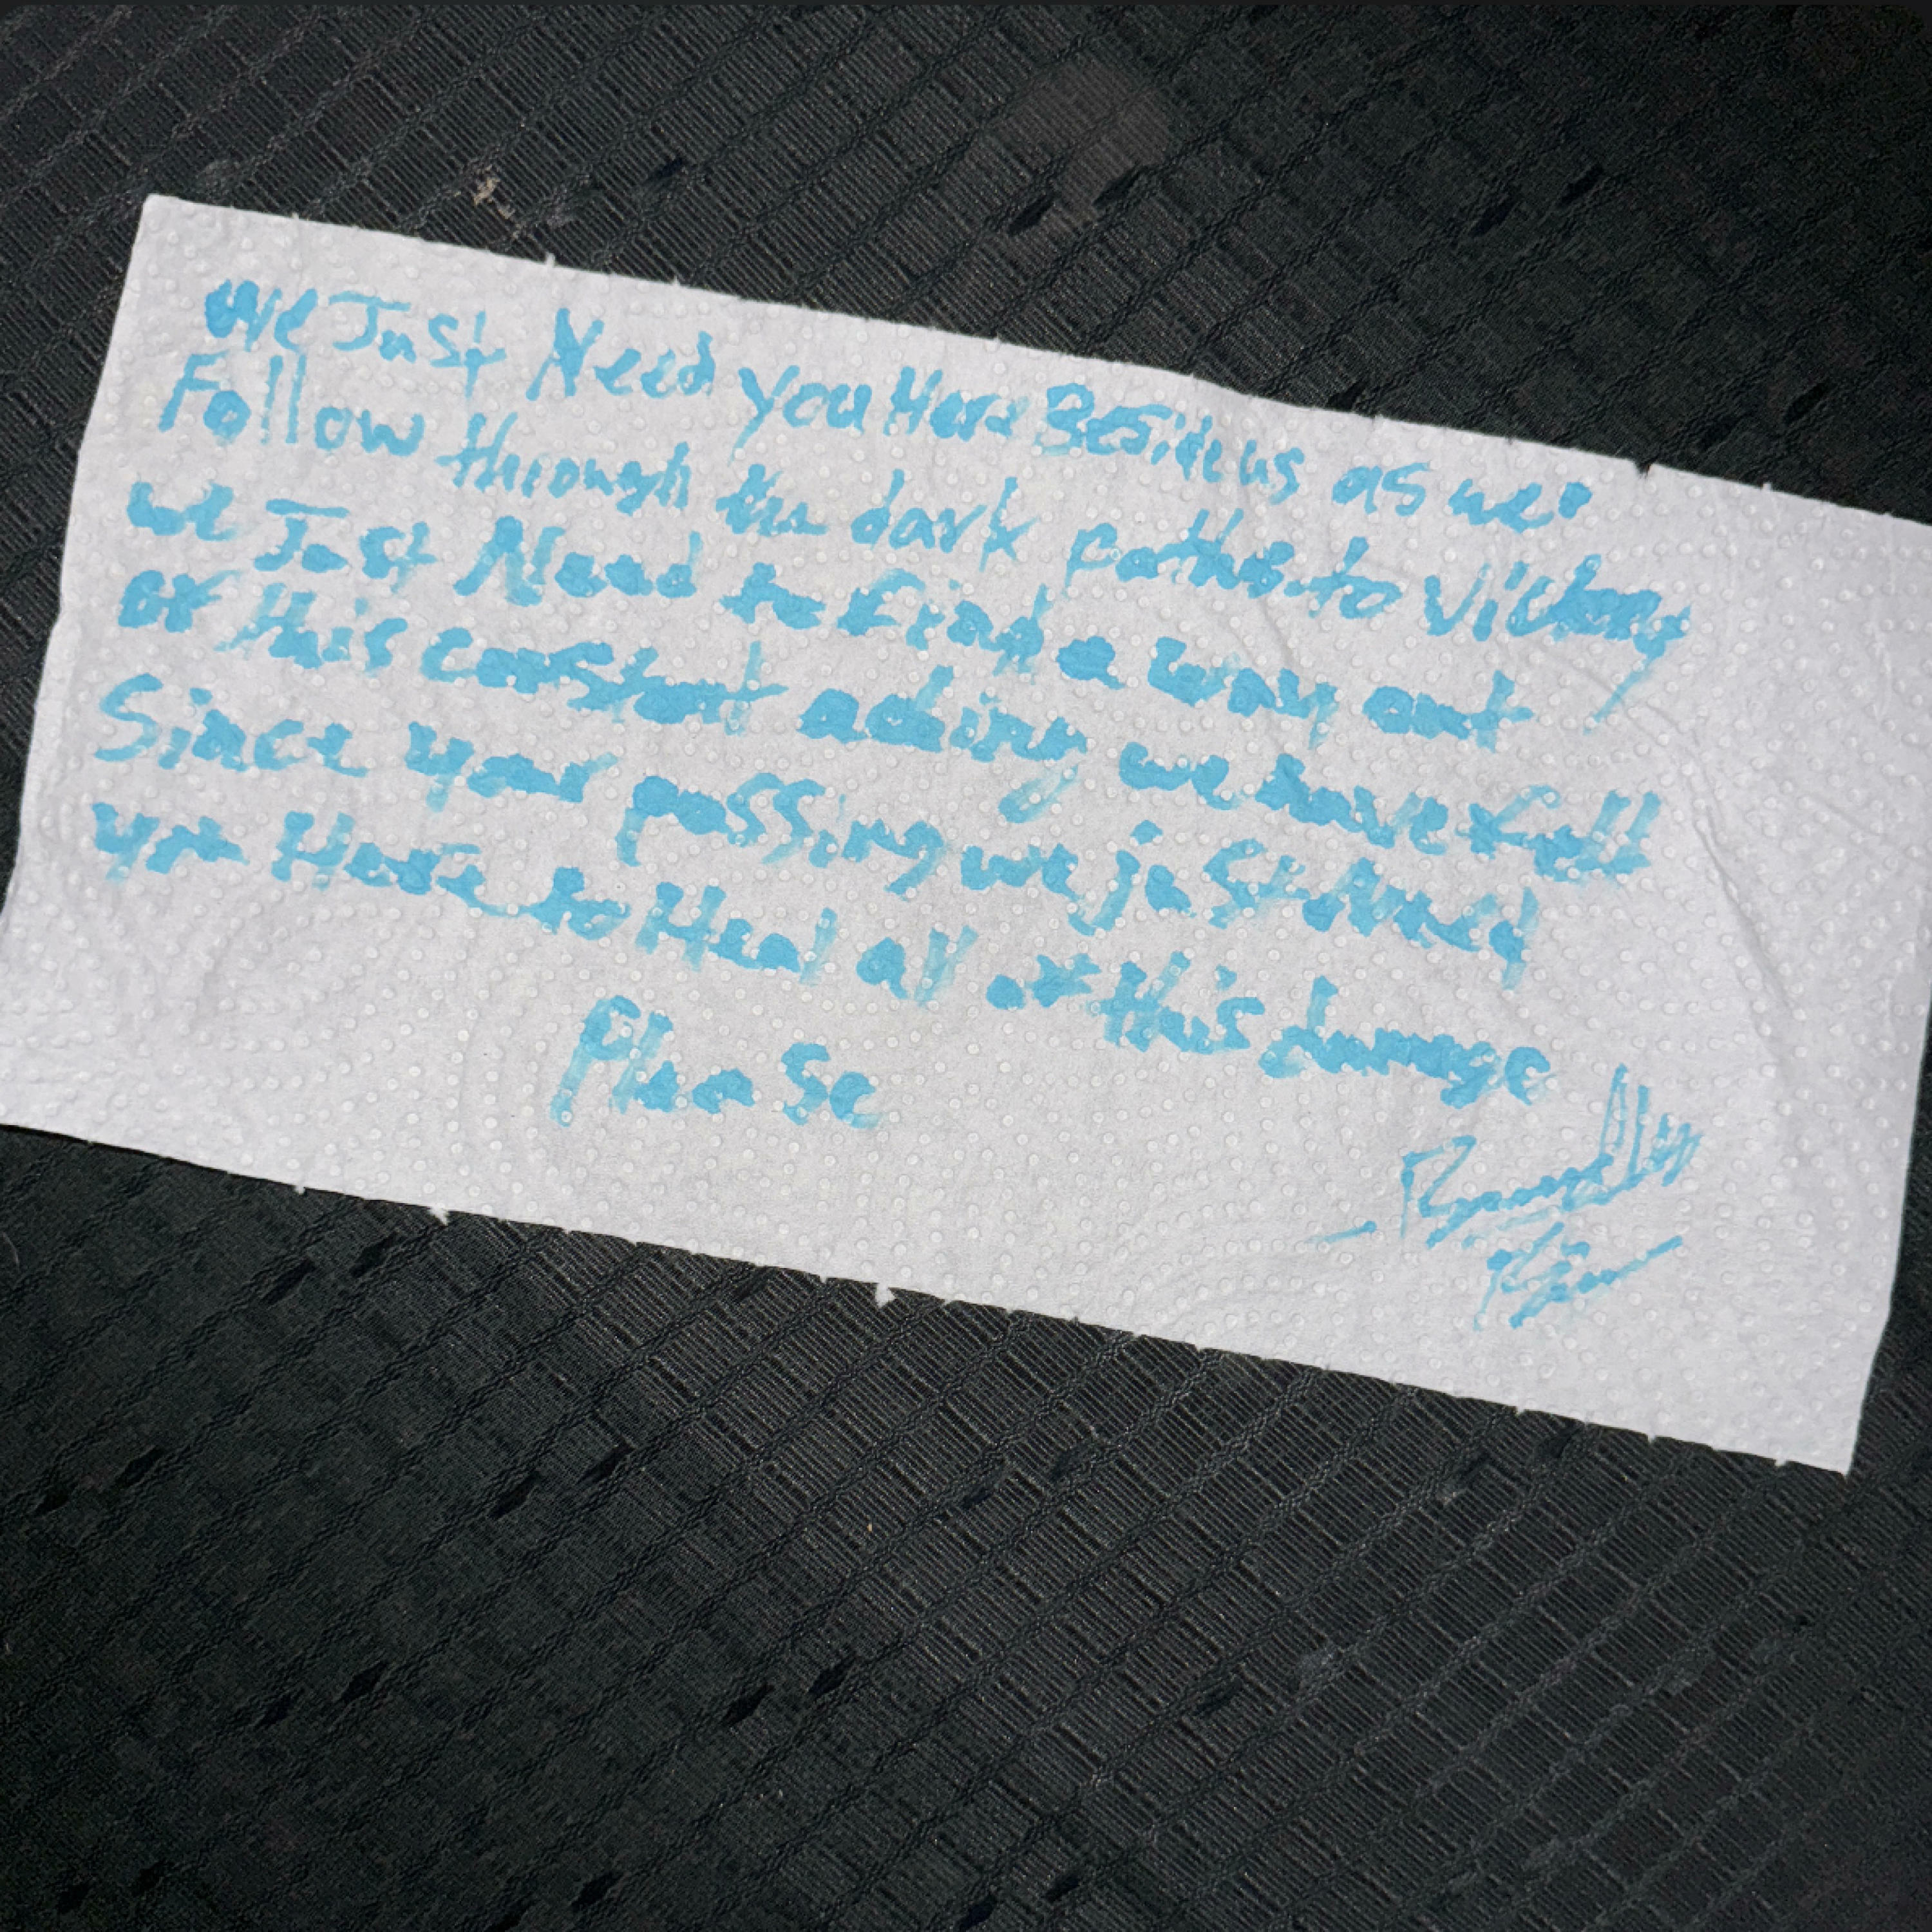 we Just Need you Here Beside us as we
Follow through the dark paths to victory
we Just Need to find a way out
of this constant aching we have felt
Since your passing we just need
you Here to Heal all of this damage
Please